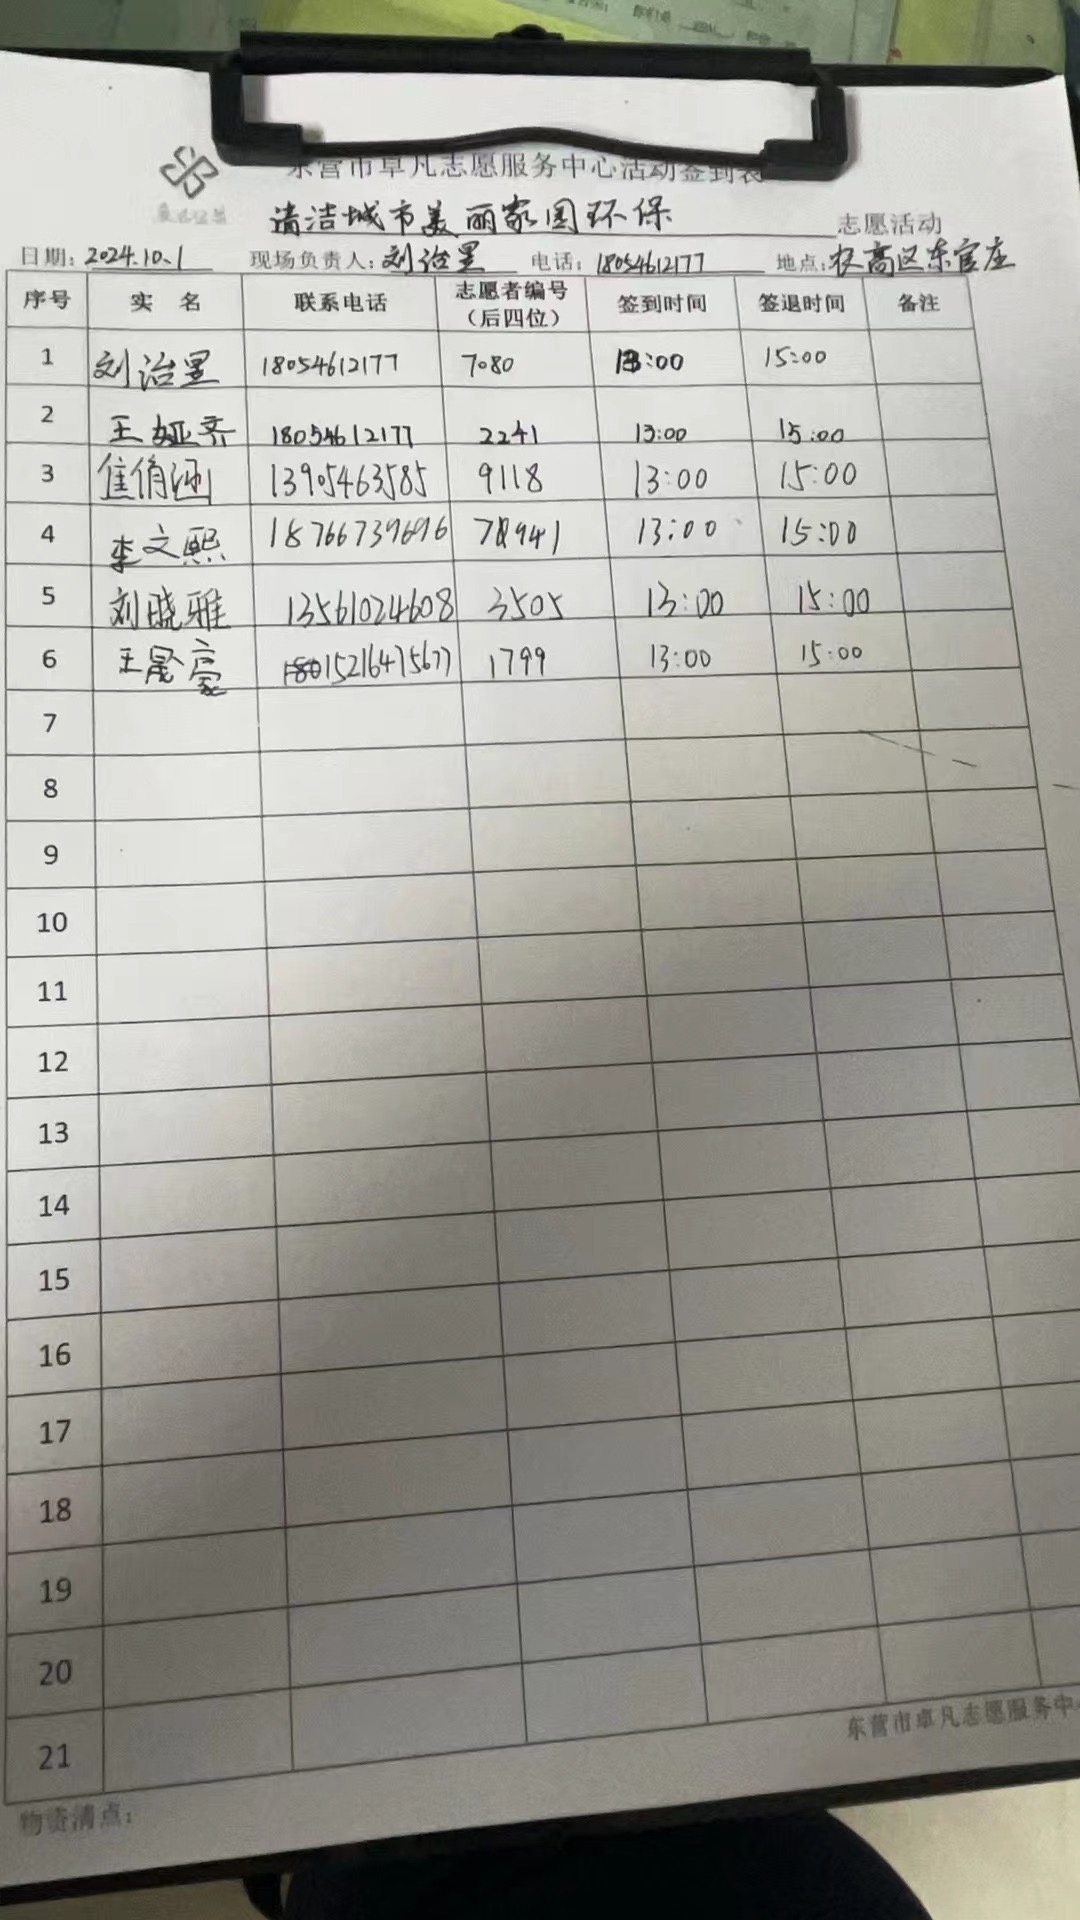 东营市卓凡志愿服务中心活动签到表
清洁城市美丽家园环保 志愿活动
日期: 2024.10.1 现场负责人: 刘治呈 电话: 18054612177 地点: 农高区东官庄
序号 实 名 联系电话 志愿者编号(后四位) 签到时间 签退时间 备注
1 刘治呈 18054612177 7080 13:00 15:00
2 王娅齐 18054612177 2241 13:00 15:00
3 焦俏涵 13905463585 9118 13:00 15:00
4 李文熙 18766739696 7941 13:00 15:00
5 刘晓雅 13561024608 3505 13:00 15:00
6 王晟豪 15216475677 1799 13:00 15:00
7
8
9
10
11
12
13
14
15
16
17
18
19
20
21
东营市卓凡志愿服务中
物资清点: